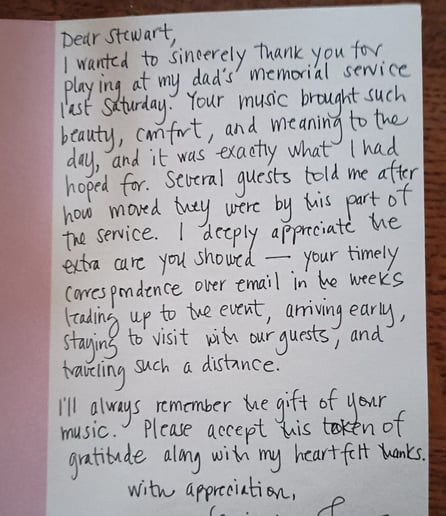 Dear Stewart,
I wanted to sincerely thank you for
playing at my dad's memorial service
last Saturday. Your music brought such
beauty, comfort, and meaning to the
day, and it was exactly what I had
hoped for. Several guests told me after
how moved they were by this part of
the service. I deeply appreciate the
extra care you showed — your timely
correspondence over email in the weeks
leading up to the event, arriving early,
staying to visit with our guests, and
traveling such a distance.
I'll always remember the gift of your
music. Please accept this token of
gratitude along with my heartfelt thanks.
With appreciation,